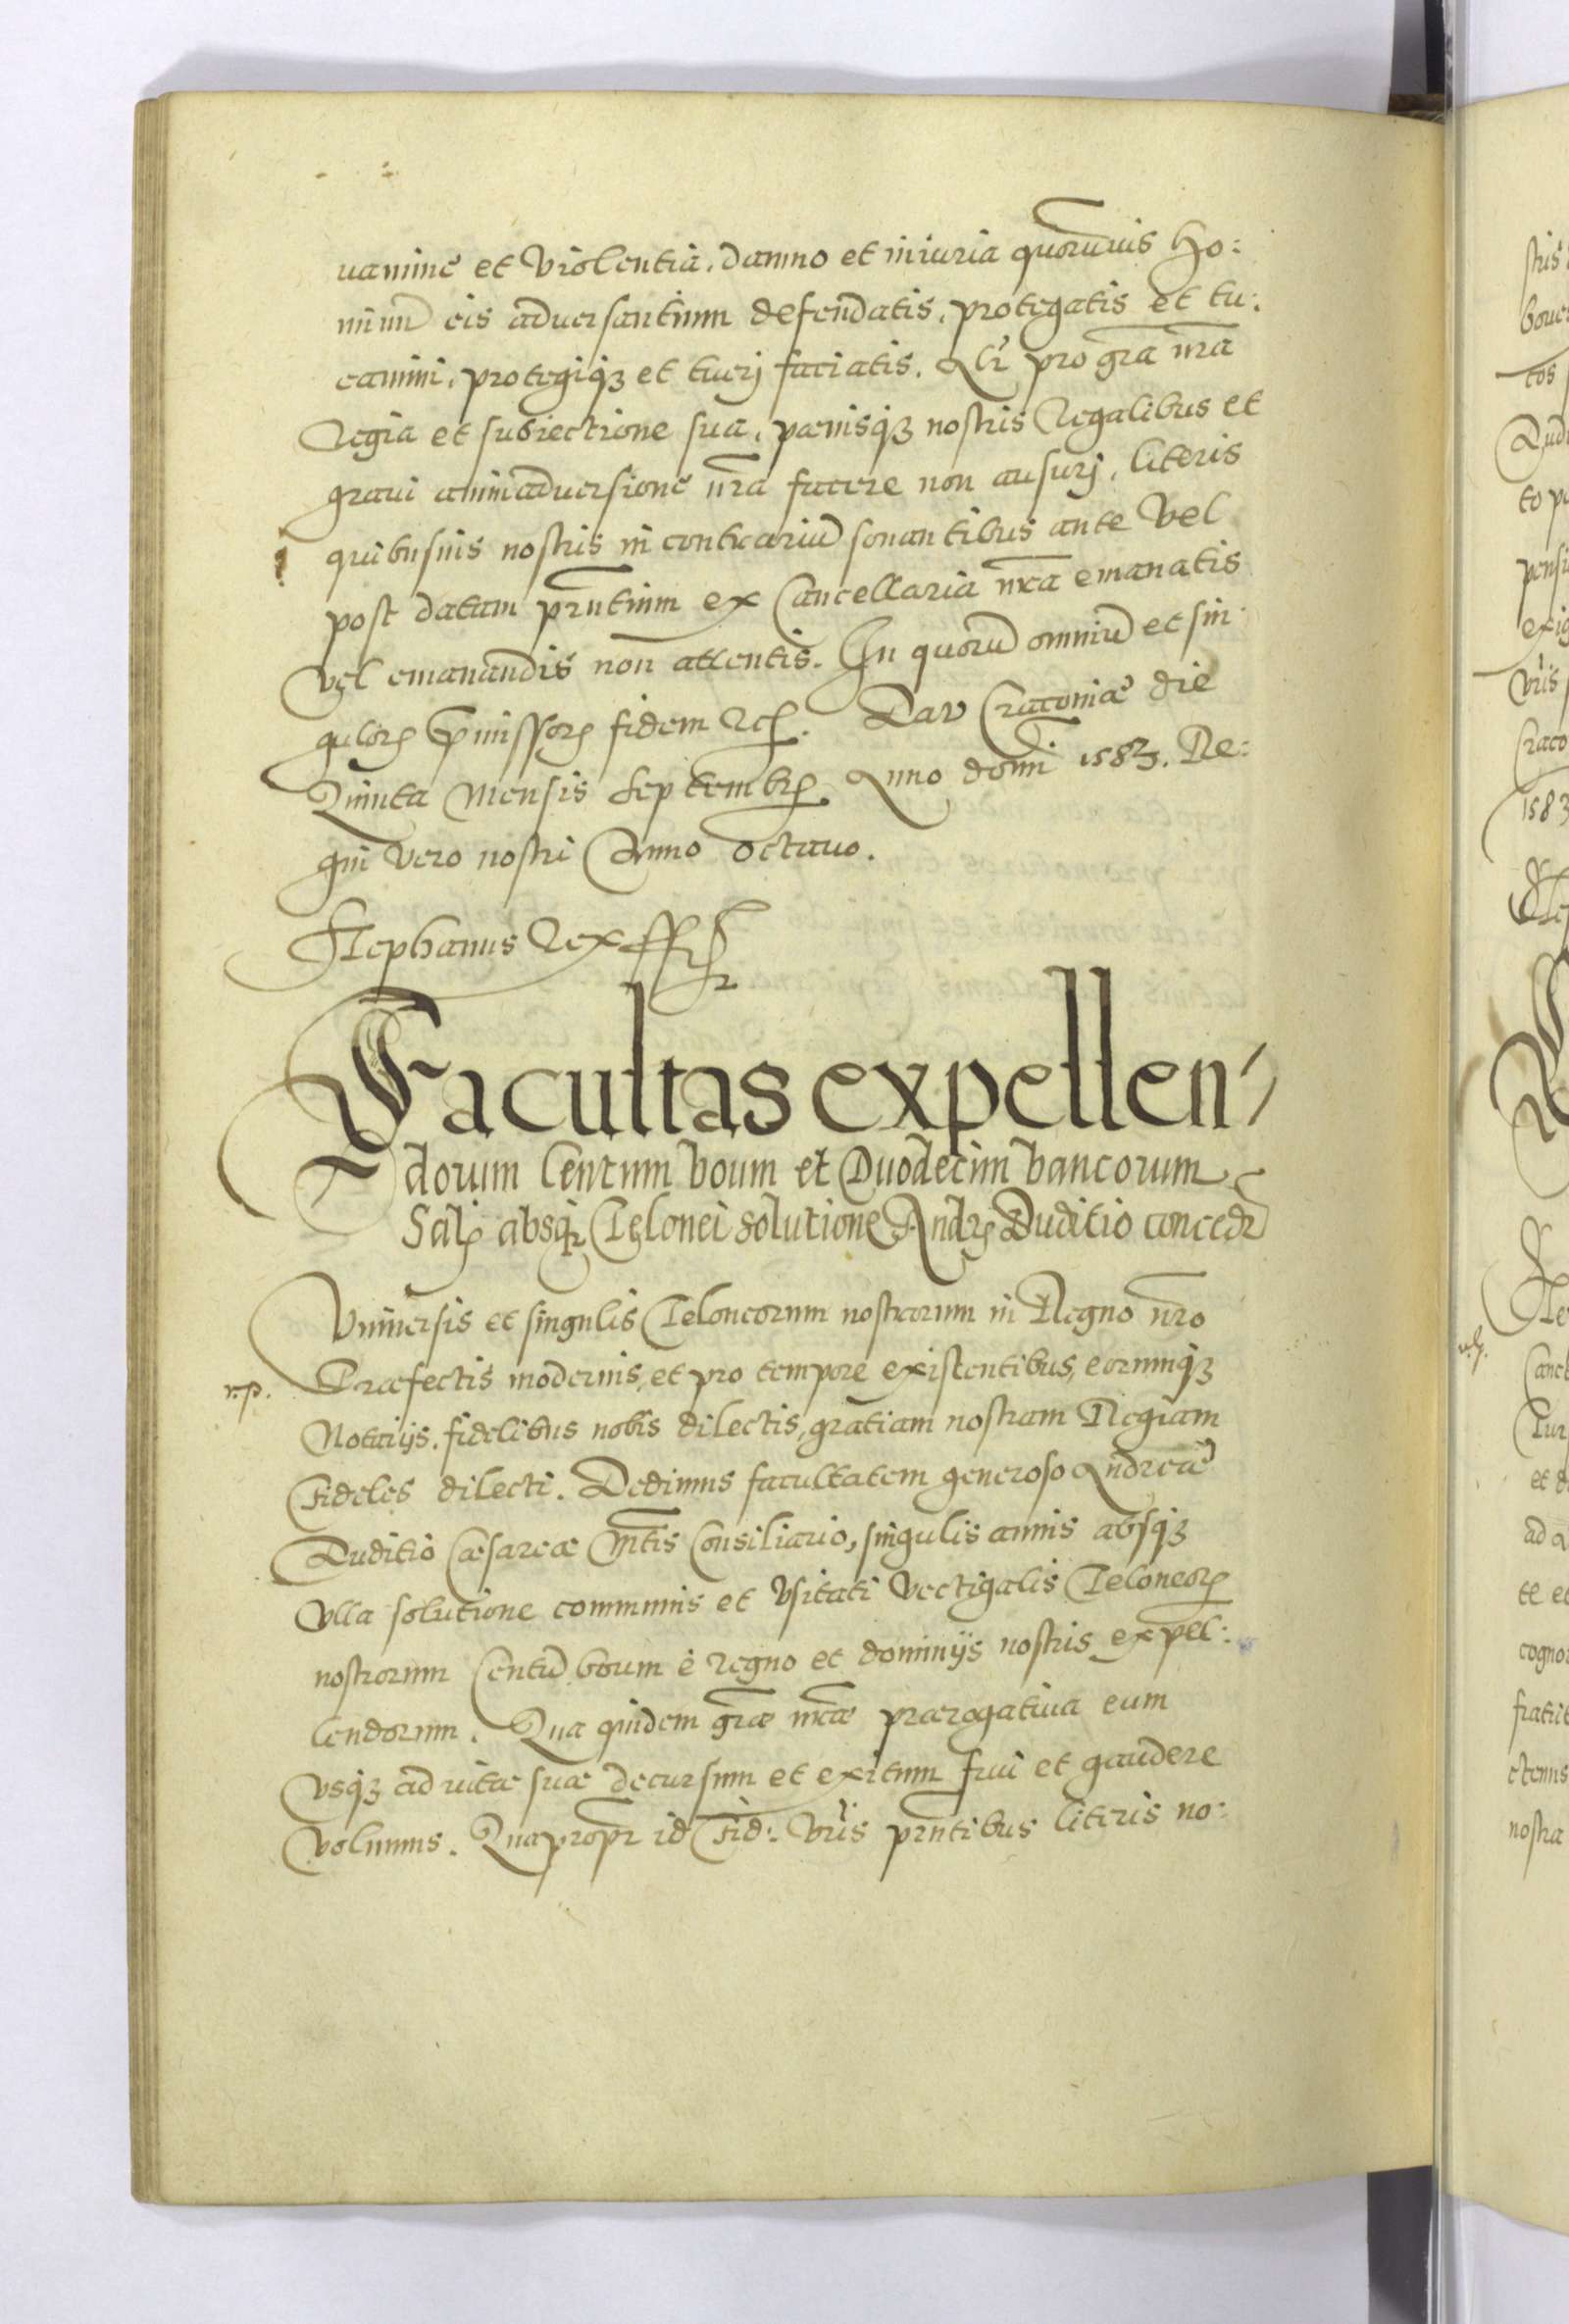 uamine et violentia, damno et iniuria quorumvis ho:
minū eis aduersantium defendatis, protegatis et tu:
eamini, protegiqȝ et tuerj faciatis. Alr̄ pro gr̄a nr̄a
Regia et subiectione sua, pœnisqȝ nostris Regalibus et
graui animaduersione nr̄a facere non ausurj, literis
quibusuis nostris in contrariū sonantibus ante vel
post datam pr̄ntium ex Cancellaria nr̄a emanatis
vel emanandis non attentis. In quorū omniū et sin:
gulorꝝ p̄missorꝝ fidem Rc. Dat̄ Cracouiæ die
Quinta Mensis Septembrꝭ Anno domi 1583. Re:
gni vero nostri Anno octauo.
Stephanus Rex sst
Facultas expellen-
dorum Centum boum et Duodecim bancorum
Salꝭ absqꝫ Telonei solutione Andrꝭ Duditio concedr̄
Vniuersis et singulis Teloneorum nostrorum in Regno nr̄o
Præfectis modernis, et pro tempore existentibus, eorumqȝ
r.p.
Notarijs, fidelibus nobis dilectis, gratiam nostram Regiam
Fideles dilecti. Dedimus facultatem generoso Andreæ
Duditio Cæsareæ Mtis Consiliario, singulis annis absqȝ
Vlla solutione communis et vsitati vectigalis Teloneorꝝ
nostrorum Centū boum è regno et dominijs nostris expel:
lendorum. Qua quidem gr̄æ nr̄æ prærogatiua eum
vsqȝ ad vitæ suæ decursum et exitum frui et gaudere
volumus. Quapropr̄ id Fid: Vr̄is pr̄ntibus literis no: